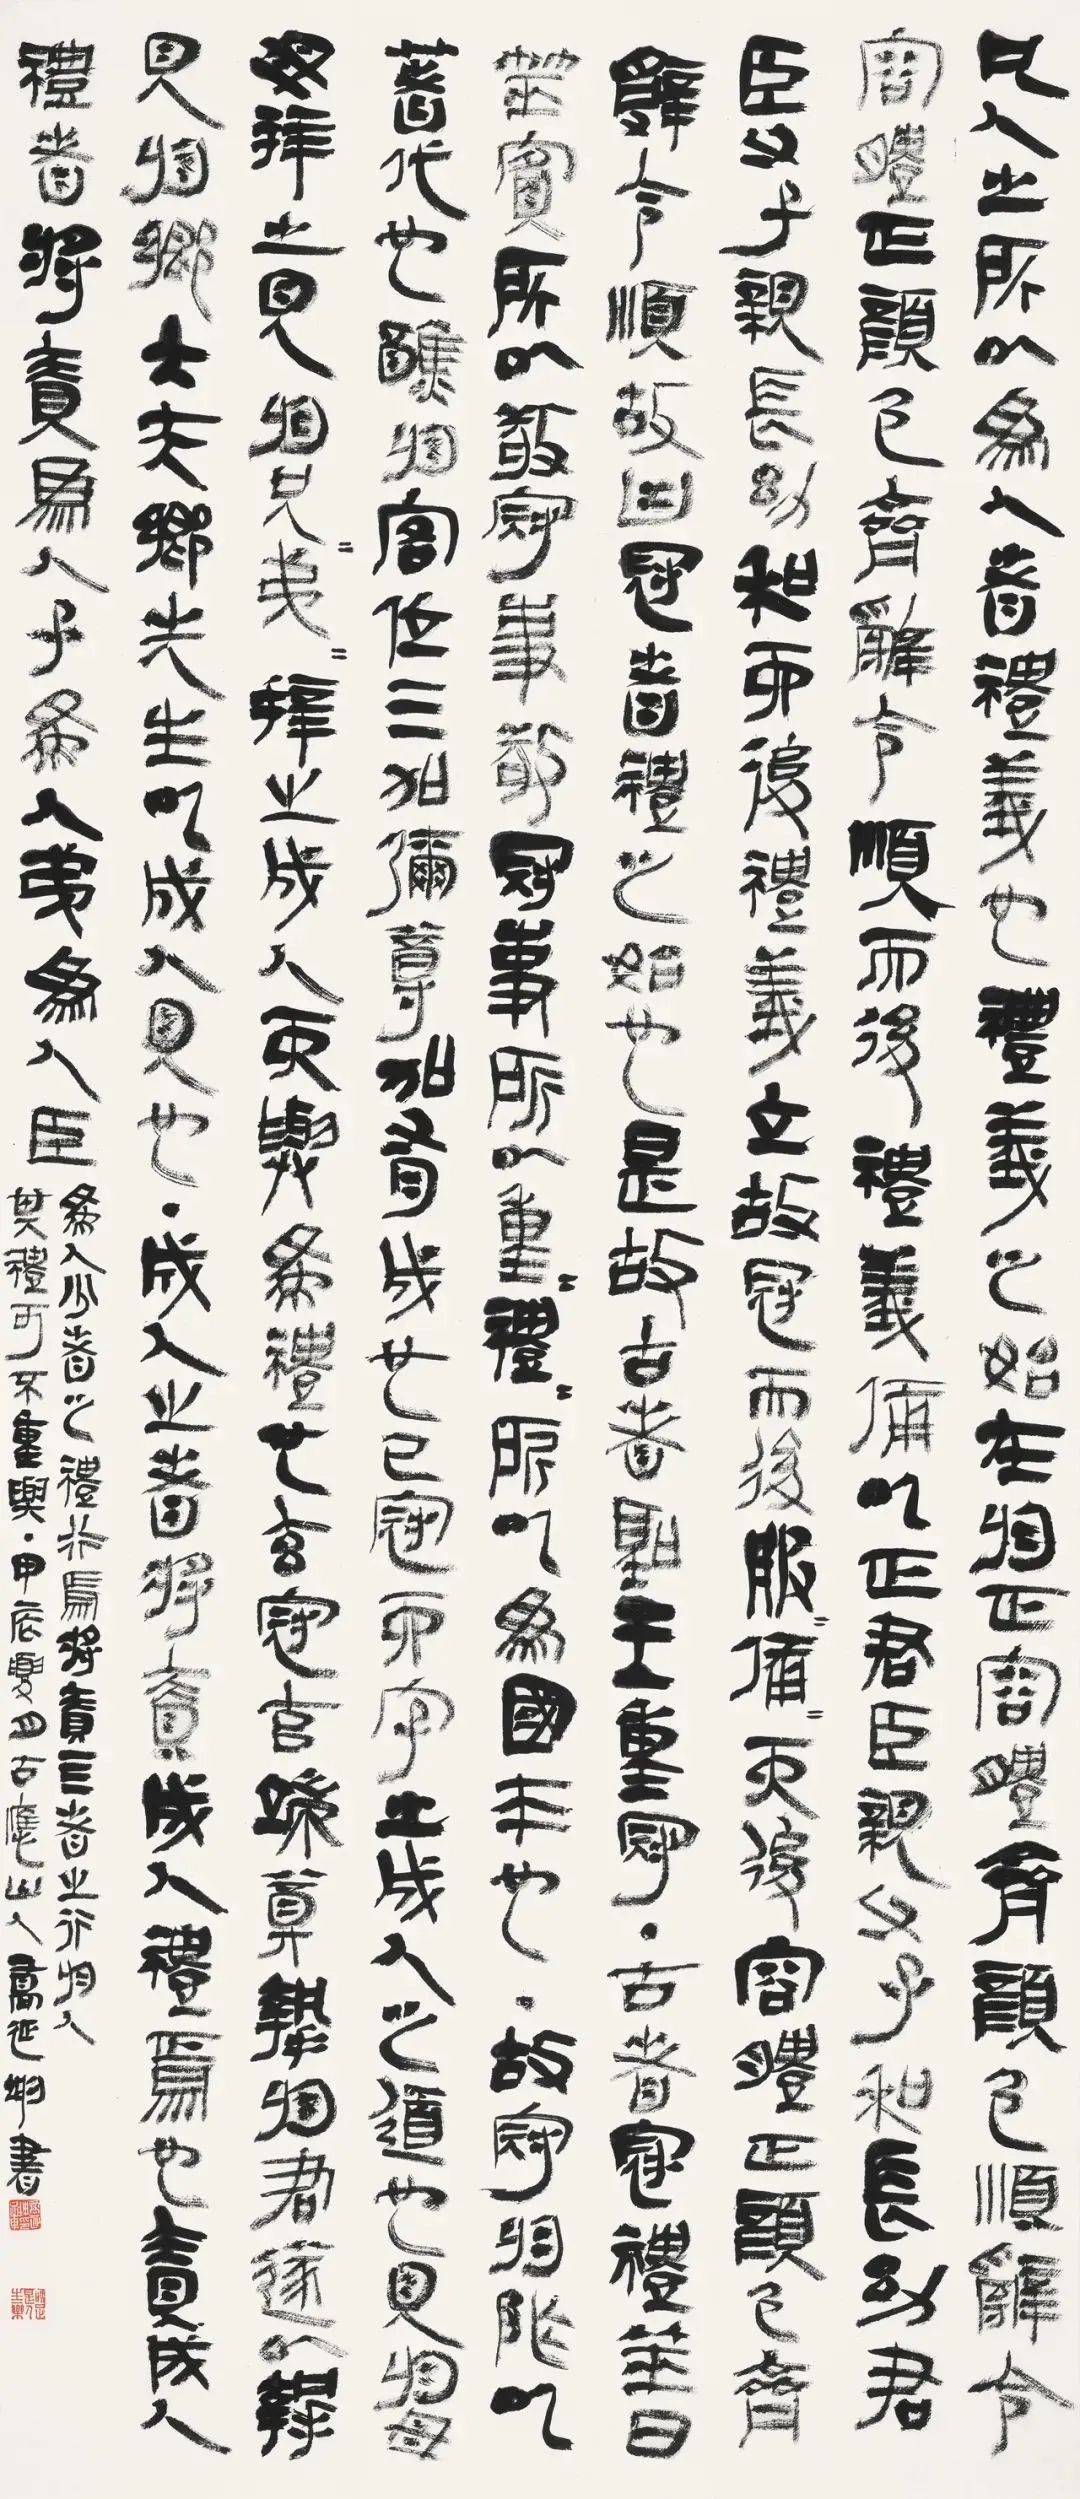 凡人之所以為人者禮義也禮義之始在於正容體齊顏色順辭令
容體正顏色齊辭令順而後禮義備以正君臣親父子和長幼君
臣父子親長幼和而後禮義立故冠而後服=備=而後容體正顏色齊
辭令順故曰冠者禮之始也是故古者聖王重冠·古者冠禮筮日
筮賓所以敬冠事敬冠事所以重=禮=所以為國本也·故冠於阼以
著代也醮於客位三加彌尊加有成也已冠而字之成人之道也見於母
母拜之見於兄=弟=拜之成人而與為禮也玄冠玄端奠摯於君遂以摯
見於鄉大夫鄉先生以成人見也·成人之者將責成人禮焉也責成人
禮者將責為人子為人弟為人臣
為人少者之禮行焉將責三者之行於人
其禮可不重與·甲辰夏月古應山人高延書